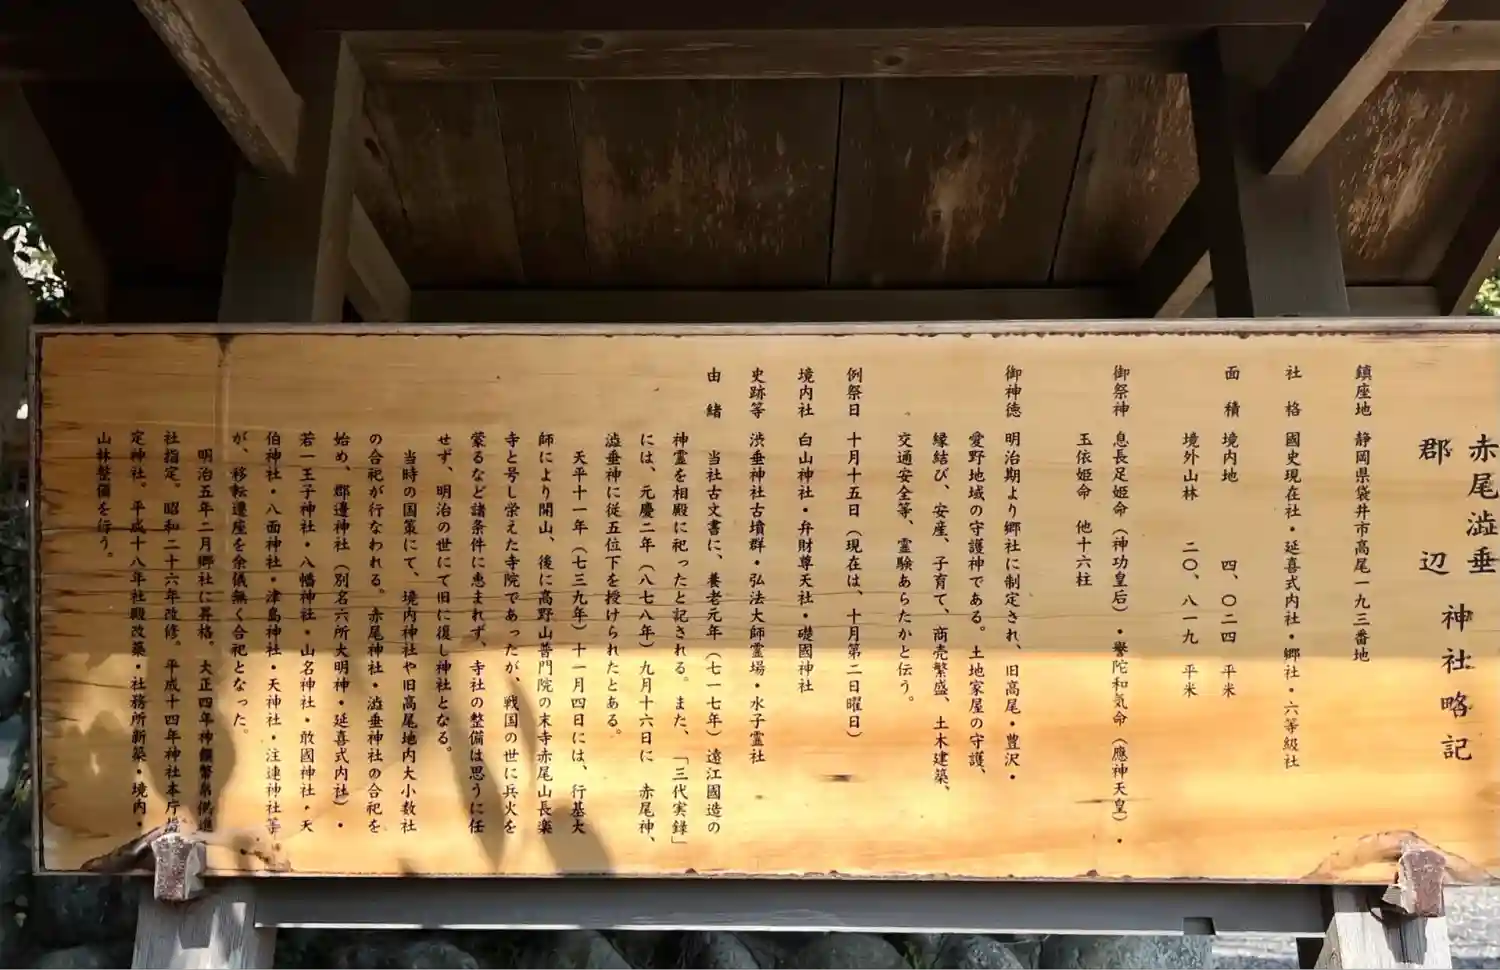 赤尾澁垂
郡辺
神社略記
鎮座地 静岡県袋井市高尾一九三番地
社格 國史現在社・延喜式内社・郷社・六等級社
面積 境内地 四、〇二四 平米
境外山林 二〇、八一九 平米
御祭神 息長足姫命（神功皇后）・譽陀和気命（應神天皇）・
玉依姫命 他十六柱
御神徳 明治期より郷社に制定され、旧高尾・豊沢・
愛野地域の守護神である。土地家屋の守護、
縁結び、安産、子育て、商売繁盛、土木建築、
交通安全等、霊験あらたかと伝う。
例祭日 十月十五日（現在は、十月第二日曜日）
境内社 白山神社・弁財尊天社・礎國神社
史跡等 渋垂神社古墳群・弘法大師霊場・水子霊社
由緒 当社古文書に、養老元年（七一七年）遠江國造の
神霊を相殿に祀ったと記される。また、「三代実録」
には、元慶二年（八七八年）九月十六日に 赤尾神、
澁垂神に従五位下を授けられたとある。
天平十一年（七三九年）十一月四日には、行基大
師により開山、後に高野山普門院の末寺赤尾山長楽
寺と号し栄えた寺院であったが、戦国の世に兵火を
蒙るなど諸条件に恵まれず、寺社の整備は思うに任
せず、明治の世にて旧に復し神社となる。
当時の国策にて、境内神社や旧高尾地内大小数社
の合祀が行なわれる。赤尾神社・澁垂神社の合祀を
始め、郡邊神社（別名六所大明神・延喜式内社）・
若一王子神社・八幡神社・山名神社・敢國神社・天
伯神社・八面神社・津島神社・天神社・注連神社等
が、移転遷座を余儀無く合祀となった。
明治五年二月郷社に昇格。大正四年神饌幣帛供進
社指定。昭和二十六年改修。平成十四年神社本庁指
定神社。平成十八年社殿改築・社務所新築・境内・
山林整備を行う。